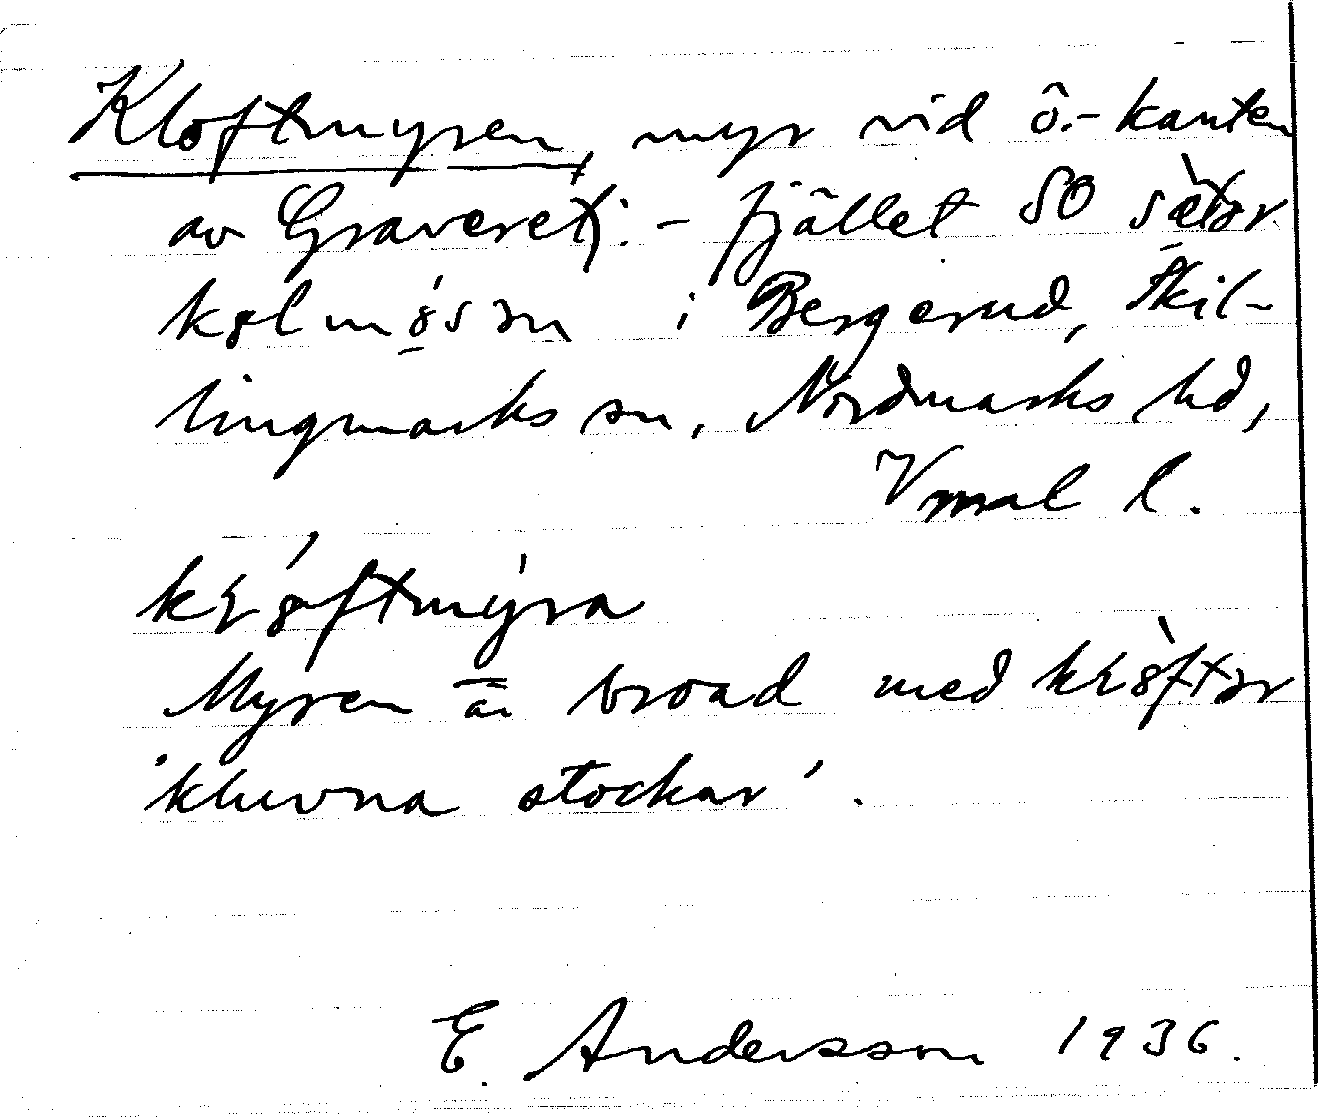 Kloftmyren, myr vid ö.-kanten
av Graveretj.-fjället SO sætər
kølmósən i Bergerud, Skil-
lingmarks sn, Nordmarks hd,
Vrml l.
klóftmýra
Myren är broad med klòftər
'kluvna stockar'.
E. Andersson 1936.